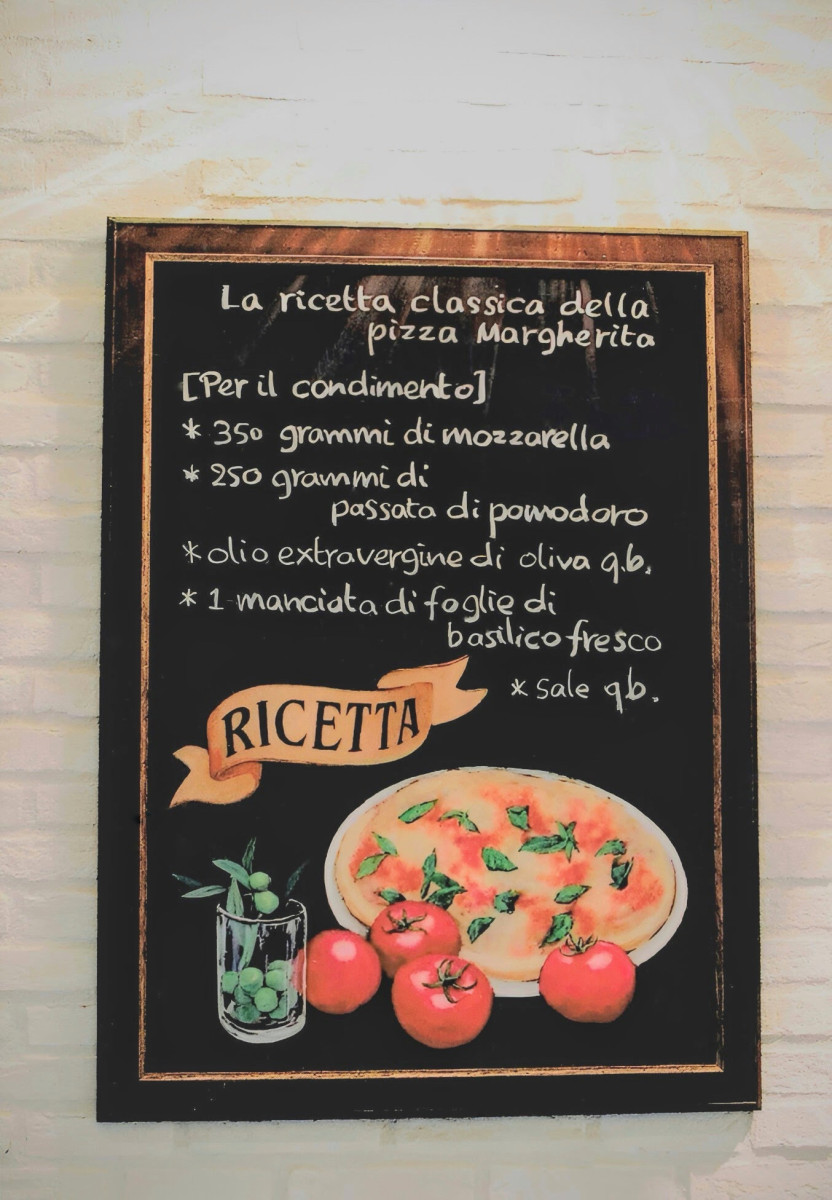 La ricetta classica della
pizza Margherita
[Per il condimento]
* 350 grammi di mozzarella
* 250 grammi di
passata di pomodoro
* olio extravergine di oliva q.b.
* 1 manciata di foglie di
basilico fresco
* sale qb.
RICETTA